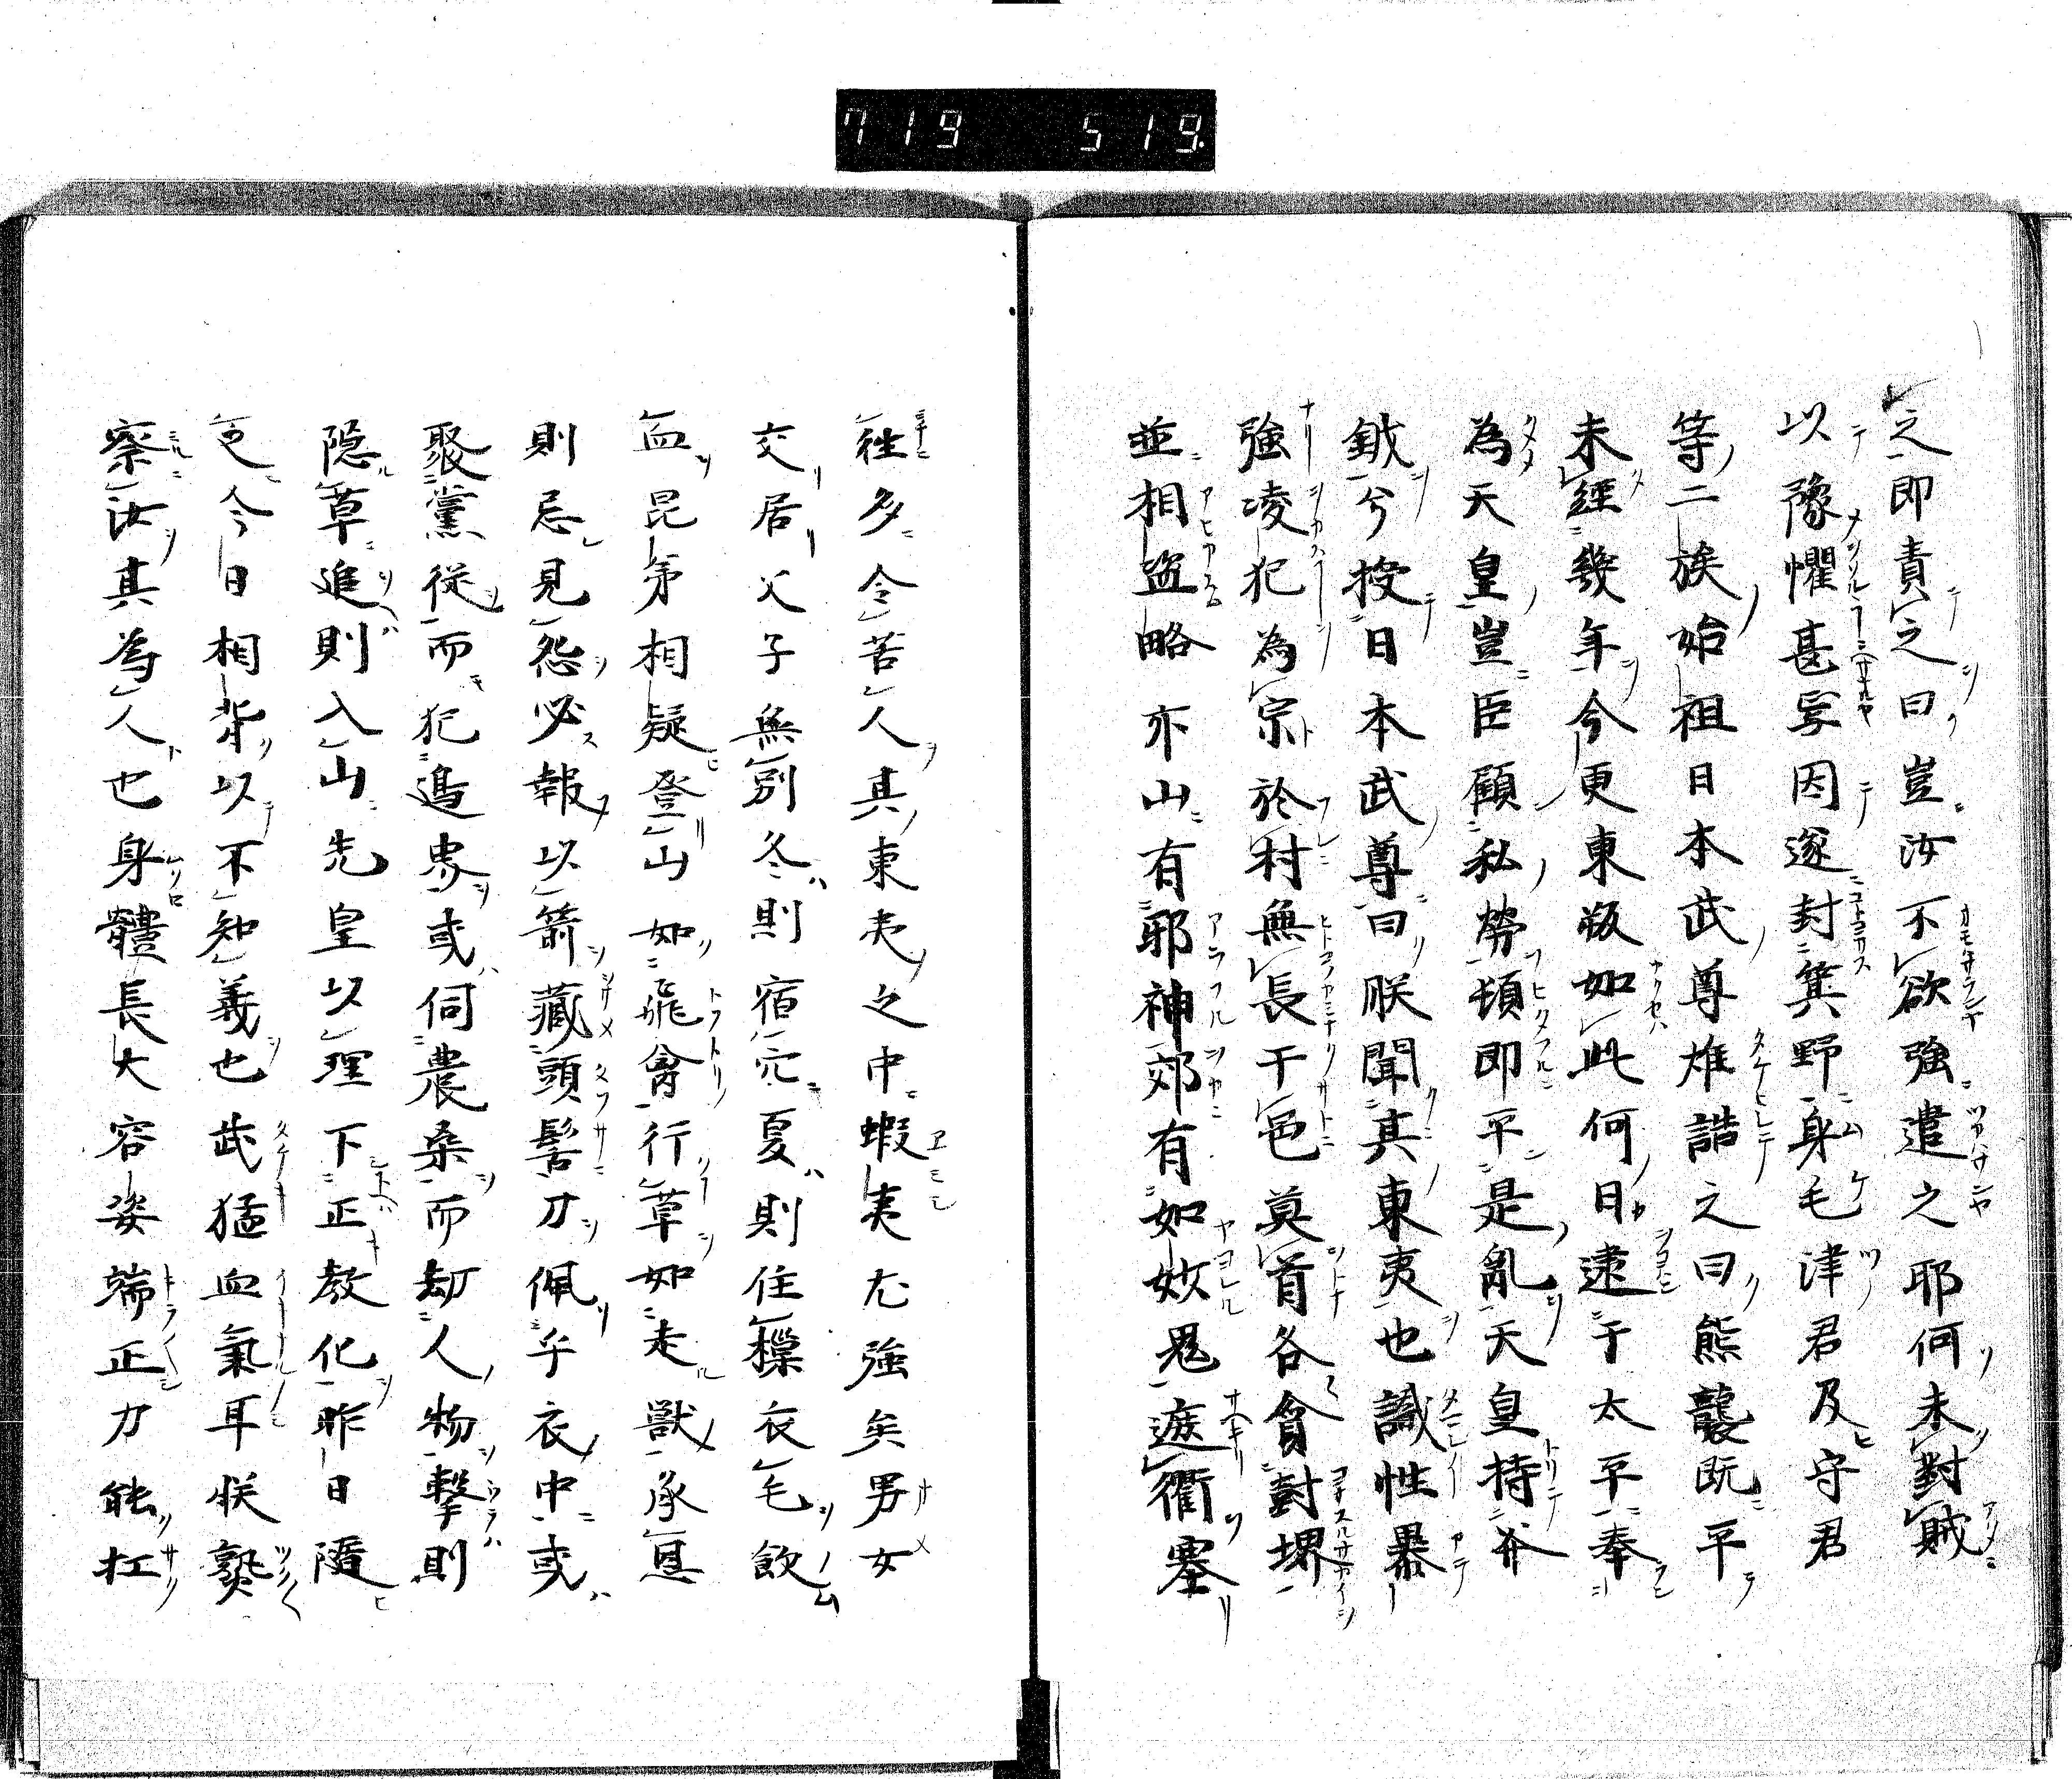 719 519.
之即責之曰豈汝不欲強遣之耶何未對賊
以豫懼甚乎因遂封箕野身毛津君及守君
等二族始祖日本武尊雄誥之曰熊襲既平
未経幾年今更東叛如此何日逮于太平奉
為天皇豈臣顧私勞頓即平是亂天皇持斧
鉞兮授日本武尊曰朕聞其東夷也識性暴
強凌犯為宗於村無長于邑莫首各貪封堺
並相盗略亦山有耶神郊有如姧鬼遮衢塞
徃多令苦人其東夷之中蝦夷尤強矣男女
交居父子無別冬則宿穴夏則住樔衣毛飲
血昆弟相疑登山如飛禽行草如走獣承恩
則忌見怨必報以箭蔵頭髻刀佩乎衣中或
聚黨従而犯邊界或伺農桑而劫人物撃則
隠草追則入山先皇以理下正教化昨日随
今日相背以不知義也武猛血氣耳朕熟
察汝其為人也身軆長大容姿端正力能扛